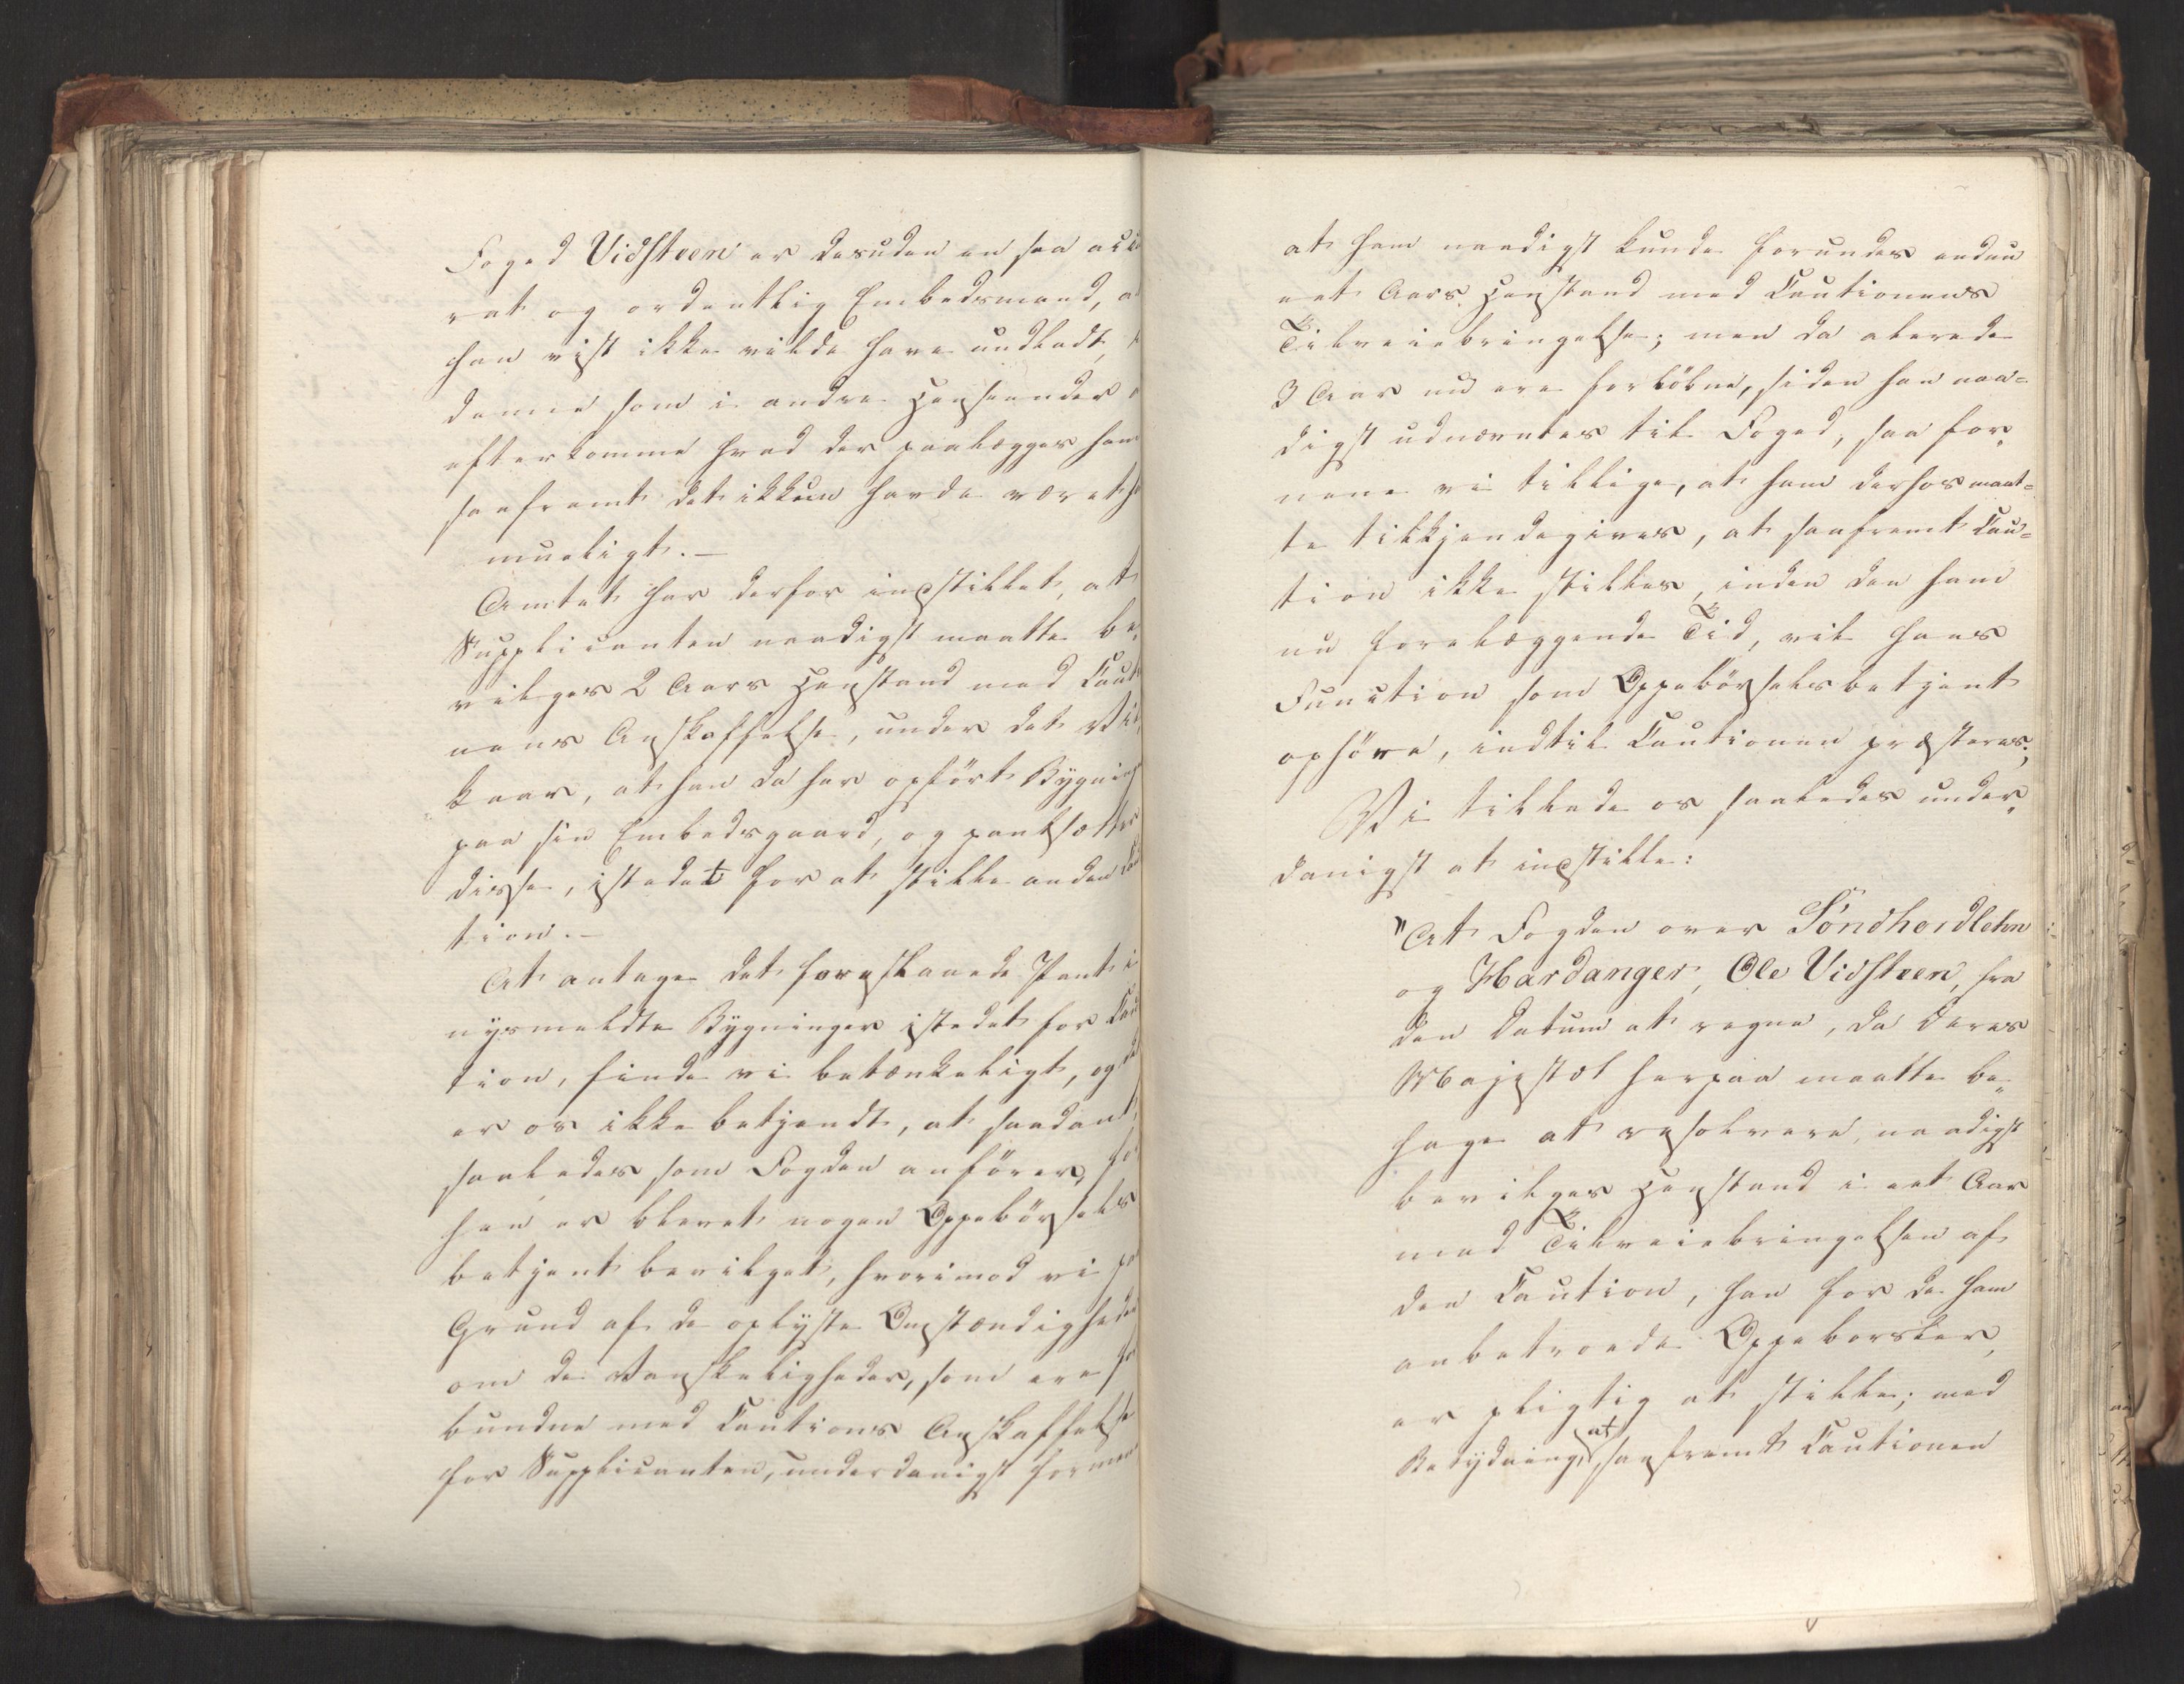 Foged Vidsteen er desuden en saa acu
rat og ordentlig Embedsmand, at
han vist ikke vilde have undladt,
denne som i andre Henseender
efterkomme hvad der paalægges ham
saafremt det ikkun havde været ha
mueligt.—
Amtet har derfor indstillet, at
Supplicanten naadigst maatte be„
vilges 2 Aars Henstand med Cauti
nens Anskaffelse, under det Vil
kaar, at han da har opført Bygninger
paa sin Embedsgaard, og pantsætter
disse, istedet for at stille anden Cau
tion.—
At antage det foreslaaede Pant i
nysmeldte Bygninger istedet for Cau
tion, finde vi betænkeligt, og
er os ikke bekjendt, at saadant,
saaledes som Fogden anfører, fö
hen er blevet nogen Oppebörsels
betjent bevilget, hvorimod vi pa
Grund af de oplyste Omstændigheder
om de Vanskeligheder, som ere for
bundne med Cautions Anskaffelse
for Supplicanten, underdanigst formene
at ham naadigst kunde forundes endnu
eet Aars Henstand med Cautionens
Tilveiebringelse; men da allerede
3 Aar nu ere forløbne, siden han naa=
digst udnævntes til Foged, saa for„
mene vi tillige, at ham derhos maat=
te tilkjendegives, at saafremt Cau=
tion ikke stilles, inden den ham
nu forelæggende Tid, vil hans
Function som Oppebörselsbetjent
ophöre, indtil Cautionen præsteres;
Vi tillade os saaledes under„
danigst at indstille:
"At Fogden over Söndhordlehn
og Hardanger, Ole Vidsteen, fra
den Datum at regne, da Deres
Majestæt herpaa maatte be„
hage at resolvere, naadigst
bevilges Henstand i eet Aar
med Tilveiebringelsen af
den Caution, han for de ham
anbetroede Oppebørsler,
er pligtig at stille; med
Betydning, at saafremt Cautionen